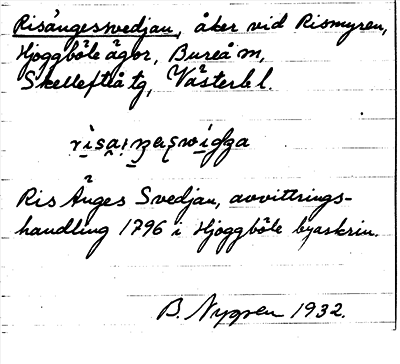 Risängessvedjan, åker vid Rismyren,
Hjoggböle ägor, Bureå sn,
Skellefteå tg, Västerb l.
Ris Änges Svedjan, avvittrings-
handling 1796 i Hjoggböle byaskrin.
B. Nygren 1932.